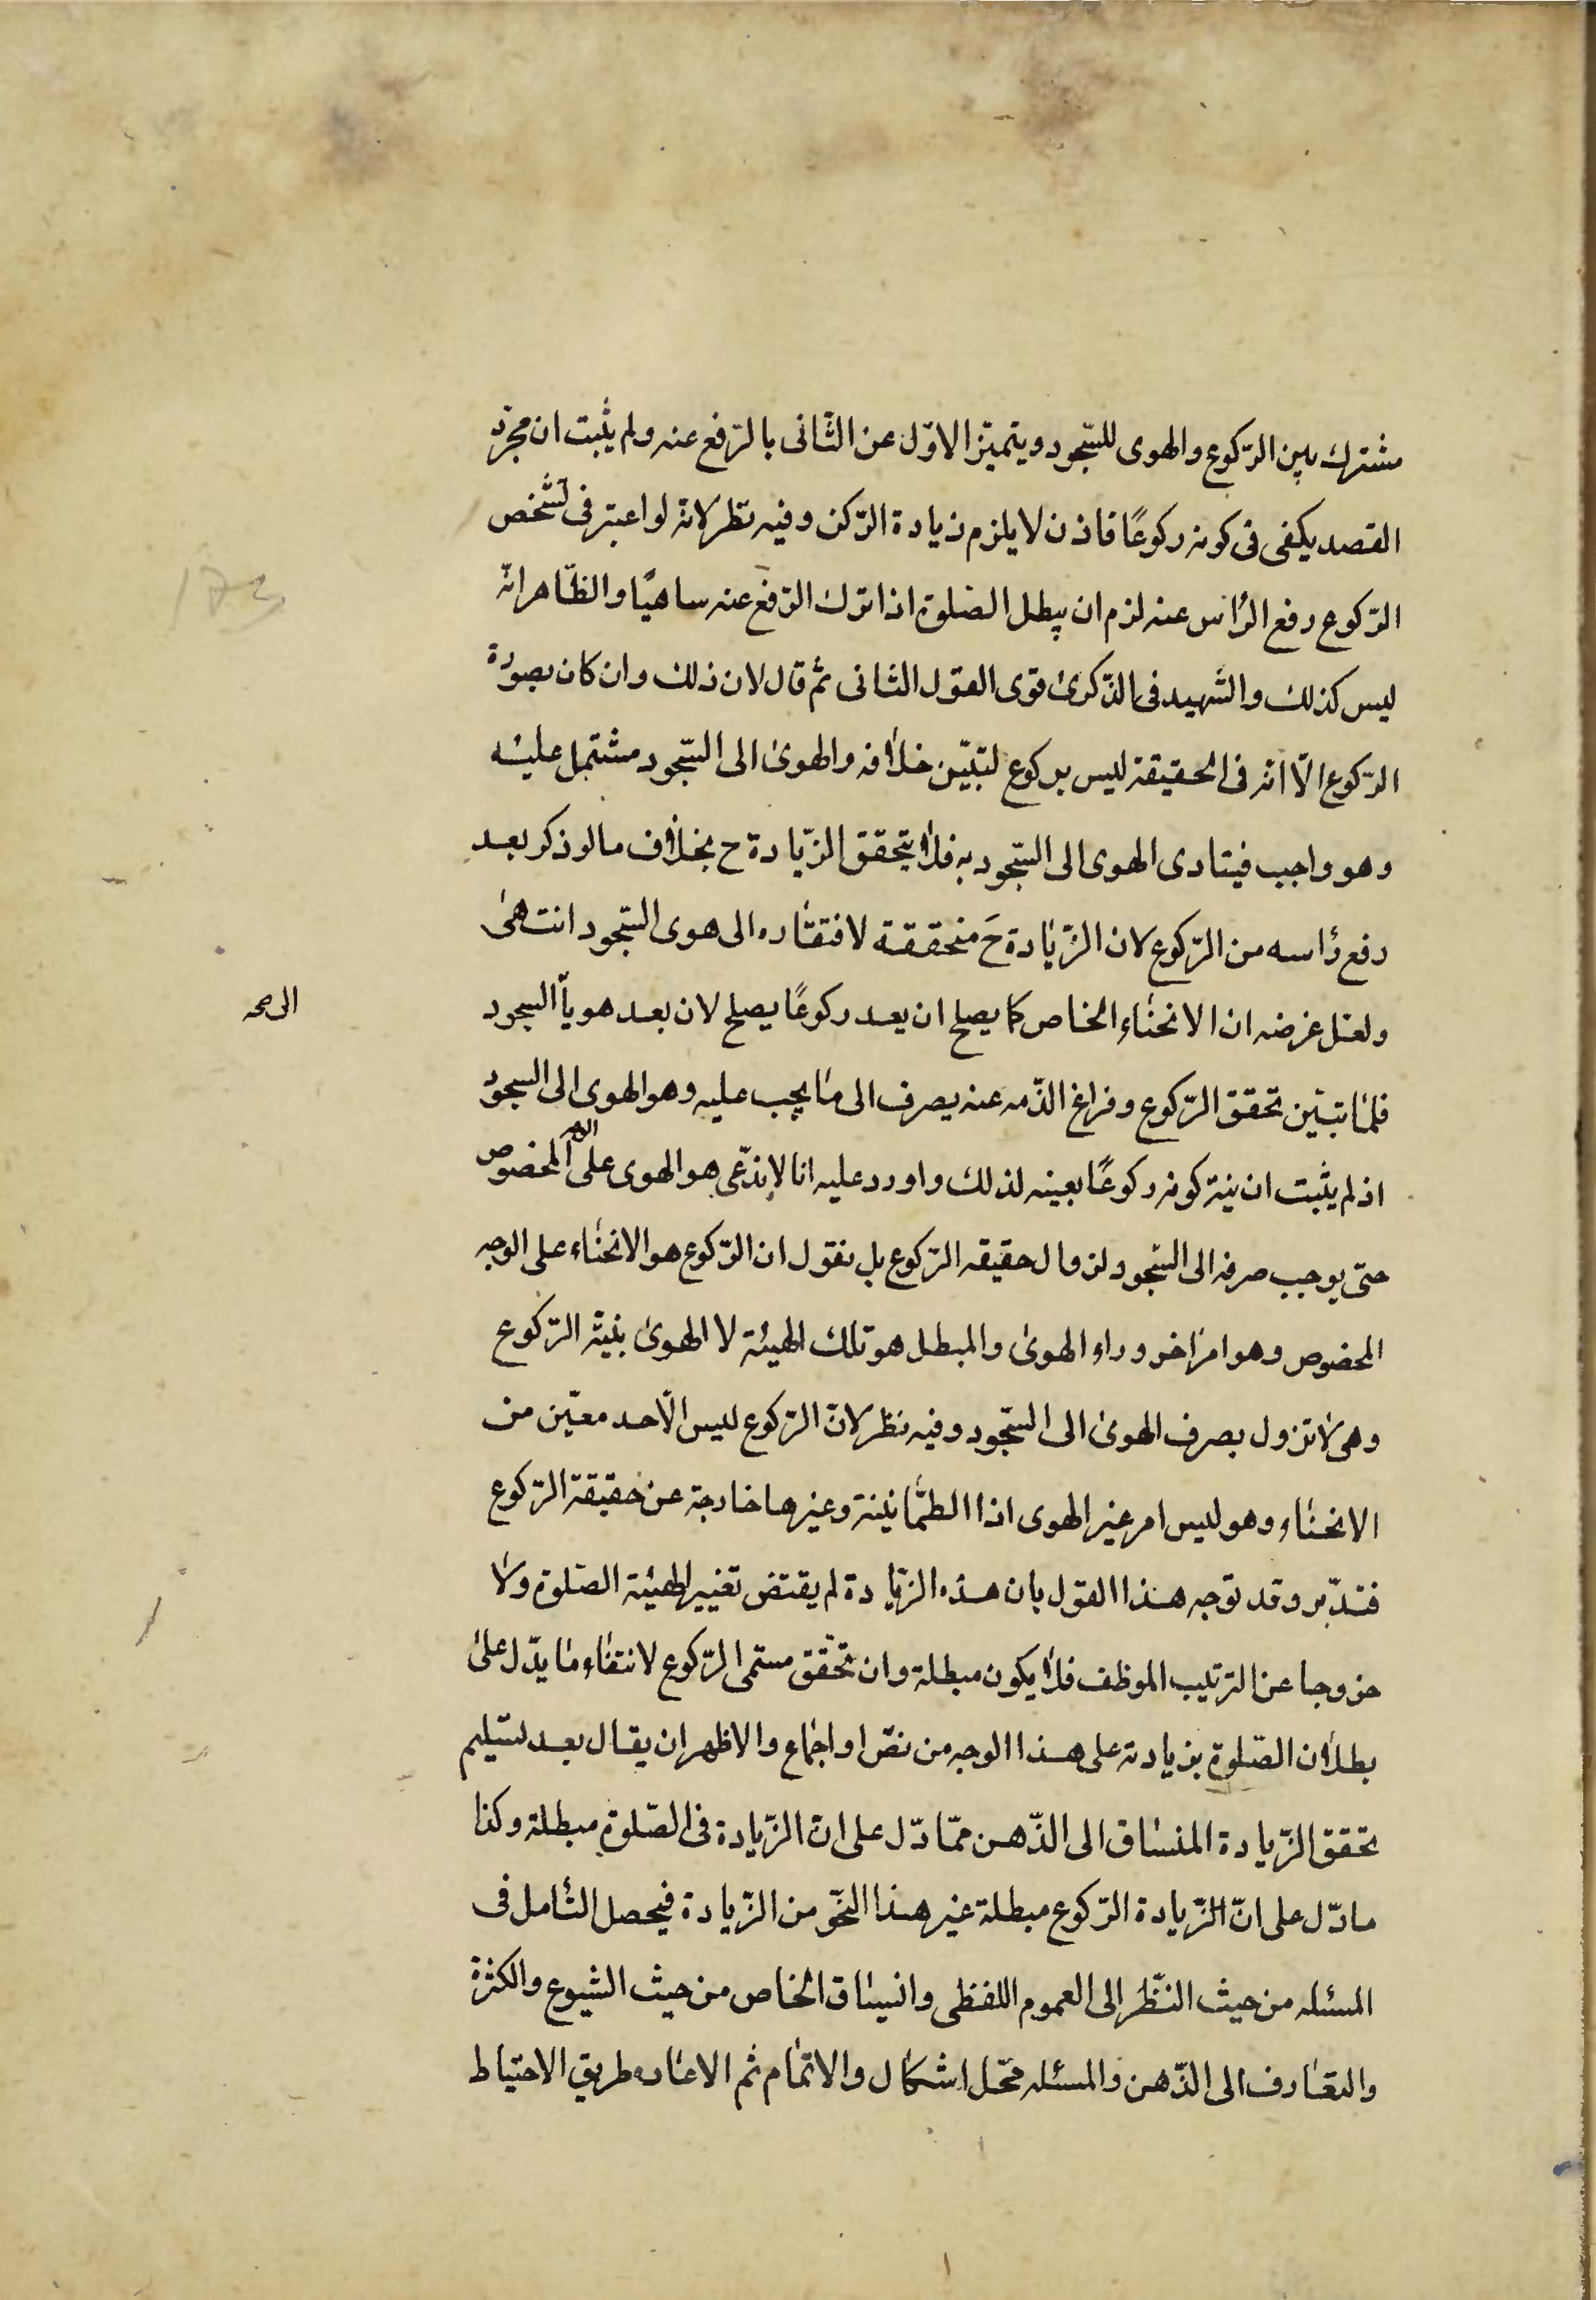 مشترك بين الرّكوع والهوى للسّجود ويتميّز الاوّل عن الثّانى بالرّفع عنه ولم يثبت ان مجرّد
القصد يكفى فى كونه ركوعًا فاذن لا يلزم زيادة الرّكن وفيه نظر لانه لو اعتبر فى تشخص
الرّكوع رفع الرّأس عنه لزم ان يبطل الصّلوة اذا ترك الرّفع عنه ساهيًا والظّاهر انّه
ليس كذلك والشّهيد فى الذّكرى قوى القول الثانى ثم قال لان ذلك وان كان بصورة
الرّكوع الّا انّه فى الحقيقة ليس بركوع لتبيّن خلافه والهوى الى السّجود مشتمل عليه
وهو واجب فيتادى الهوى الى السّجود به فلا يتحقق الزّيادة ح بخلاف ما لو ذكر بعد
رفع رأسه من الرّكوع لان الزّيادة حَ متحققة لافتقاره الى هوى السّجود انتهى
ولعل غرضه ان الانحناء الخاص كما يصلح ان يعد ركوعًا يصلح لان بعد هوياً السجود
الى صح
فلما تبيّن تحقق الرّكوع وفراغ الذّمه عنه يصرف الى ما يجب عليه وهو الهوى الى السجود
اذ لم يثبت ان نية كونه ركوعًا بعينه لذلك واورد عليه انا لا ندّعى هو الهوى على المخصوص
حتى يوجب صرفه الى السّجود لزوال حقيقه الرّكوع بل نقول ان الرّكوع هو الانحناء على الوجه
المخصوص وهو امر اخر وراء الهوى والمبطل هو تلك الهيئة لا الهوى بنيّة الرّكوع
وهى لا تزول بصرف الهوى الى السّجود وفيه نظر لانّ الرّكوع ليس الّا حد معيّن من
الانحناء وهو ليس امر غير الهوى اذا الطمّانينة وغيرها خارجة عن حقيقة الرّكوع
فتدّبر وقد توجه هذا القول بان هذه الزّيادة لم يقتض تغيير الهيئة الصّلوة ولا
خروجا عن الترتيب الموظف فلا يكون مبطلة وان تحقّق مسمى الرّكوع لانتفاء ما يدّل على
بطلان الصّلوة بزيادته على هذا الوجه من نصّ او اجماع والاظهر ان يقال بعد تسّليم
تحقق الزّيادة المنساق الى الذّهن ممّا دّل على انّ الزّيادة فى الصّلوة مبطلة وكذا
ما دّل على انّ الزّيادة الرّكوع مبطلة غير هذا النحّو من الزّيادة فيحصل التأمل فى
المسئله من حيث النّظر الى العموم اللفظى وانسياق الخاص من حيث الشيوع والكثرة
والتعارف الى الذّهن والمسئله محّل اشكال والاتمام ثم الاعاده طريق الاحتياط